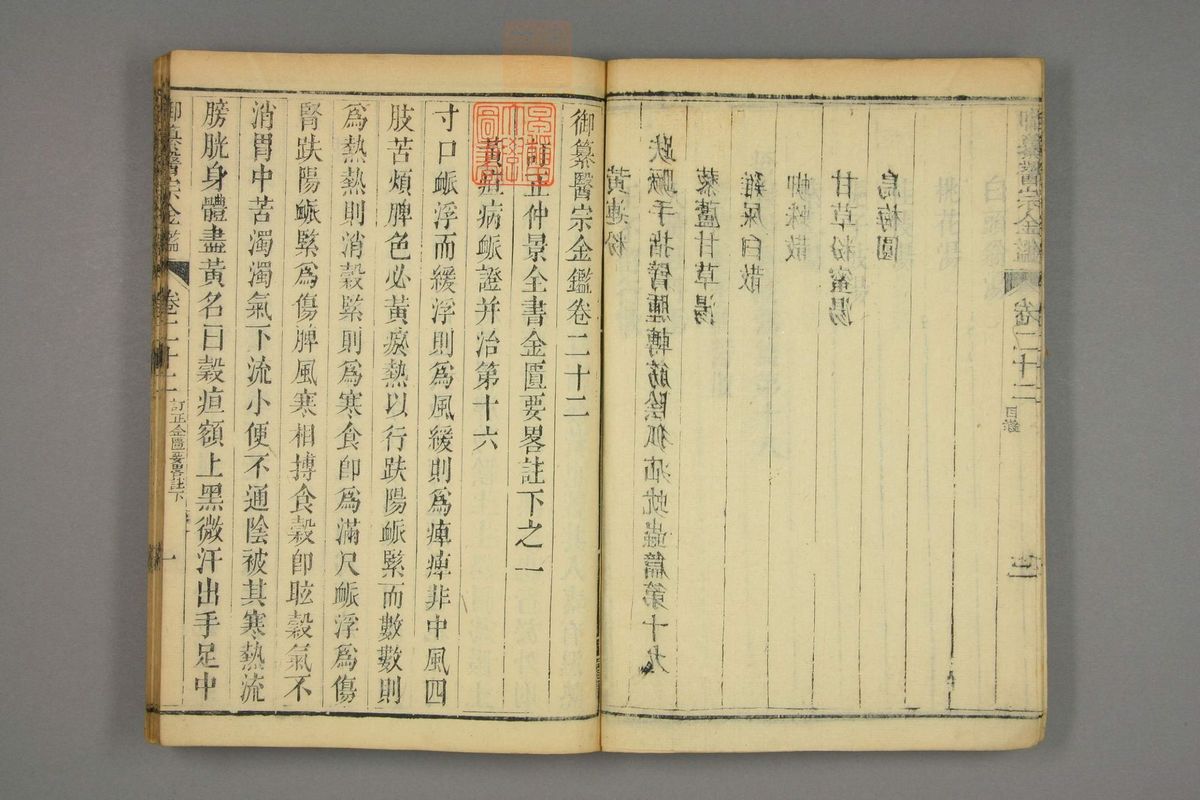 御纂醫宗金鑑 卷二十二 目錄
烏梅圓
甘草粉蜜湯
蜘蛛散
雞屎白散
藜蘆甘草湯
趺蹶手指臂腫轉筋陰狐疝蚘蟲篇第十九
黃連粉
御纂醫宗金鑑卷二十二
訂正仲景全書金匱要畧註下之一
黃疸病衇證并治第十六
寸口衇浮而緩浮則爲風緩則爲痺痺非中風四
肢苦煩脾色必黃瘀熱以行趺陽衇緊而數數則
爲熱熱則消穀緊則爲寒食卽爲滿尺衇浮爲傷
腎趺陽衇緊爲傷脾風寒相搏食穀卽眩穀氣不
消胃中苦濁濁氣下流小便不通陰被其寒熱流
膀胱身體盡黃名曰穀疸額上黑微汗出手足中
御纂醫宗金鑑 卷二十二 訂正金匱要畧註下 一